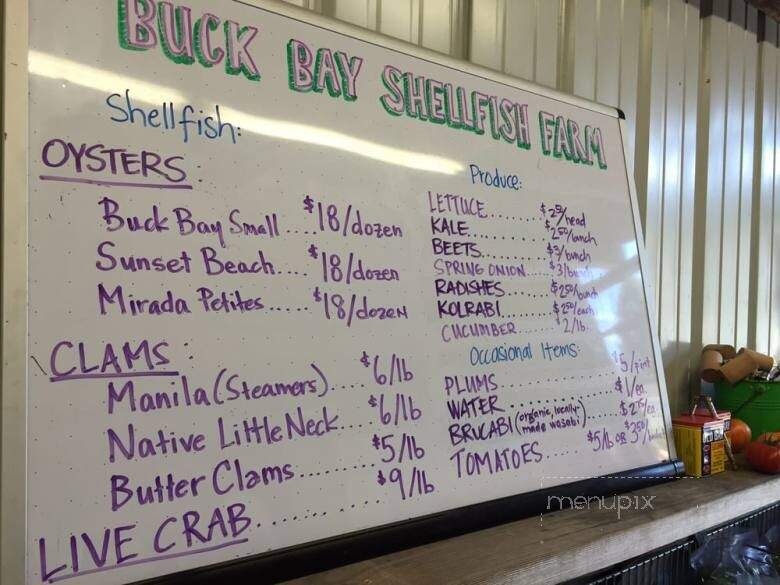 BUCK BAY SHELLFISH FARM
Shellfish:
OYSTERS:
Buck Bay Small $18/dozen
Sunset Beach.... $18/dozen
Mirada Petites..... $18/dozen
CLAMS:
Manila (Steamers).... $6/lb
Native Little Neck... $6/lb
Butter Clams...... $5/lb
LIVE CRAB............ $9/lb
Produce:
LETTUCE....... /head
KALE.......... $2.50/bunch
BEETS......... /bunch
SPRING ONION... $3/bunch
RADISHES...... $2.50/bunch
KOLRABI....... $2.50/each
CUCUMBER..... $2/lb.
Occasional Items:
PLUMS............ $5/pint
WATER............ $1/ea.
BRUCABI (organic, locally-made wasabi)..... $2.75/ea
TOMATOES..... $5/lb OR $3.50/
menupix